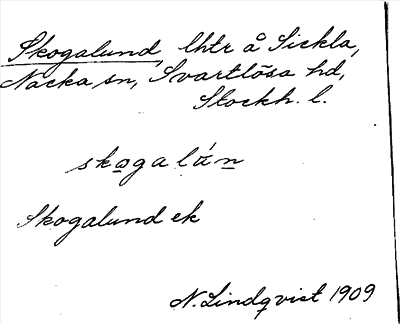 Skogalund, lhtr å Sickla,
Nacka sn, Svartlösa hd,
Stockh. l.
skogalún
Skogalund ek
N. Lindqvist 1909